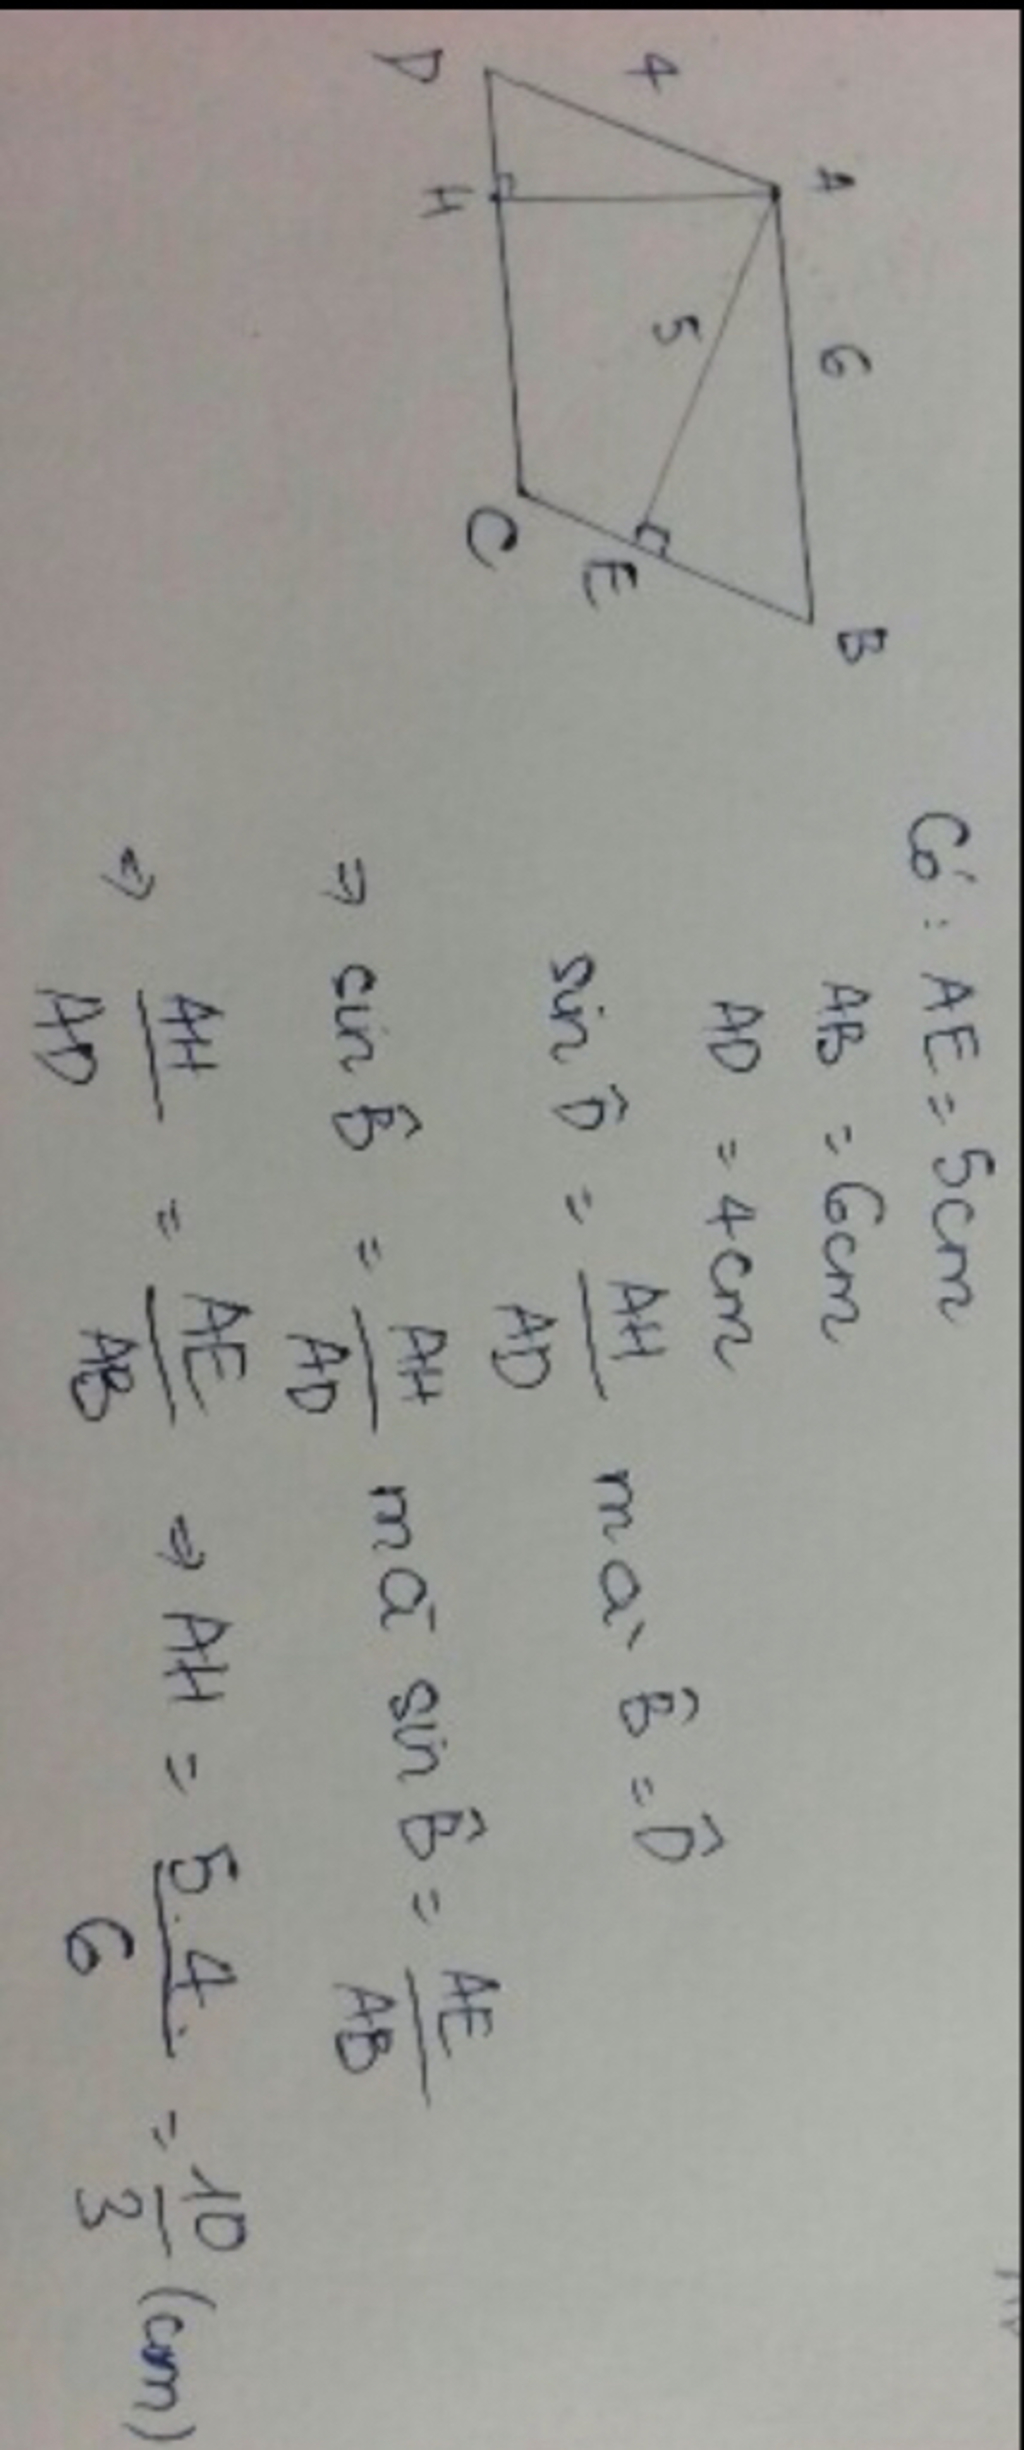 A
6
B
4
5
D
H
C
E
Có: AE = 5cm
AB = 6cm
AD = 4cm
sin D̂ = AH/AD mà B̂ = D̂
⇒ sin B̂ = AH/AD mà sin B̂ = AE/AB
⇒ AH/AD = AE/AB ⇒ AH = 5.4/6 = 10/3 (cm)